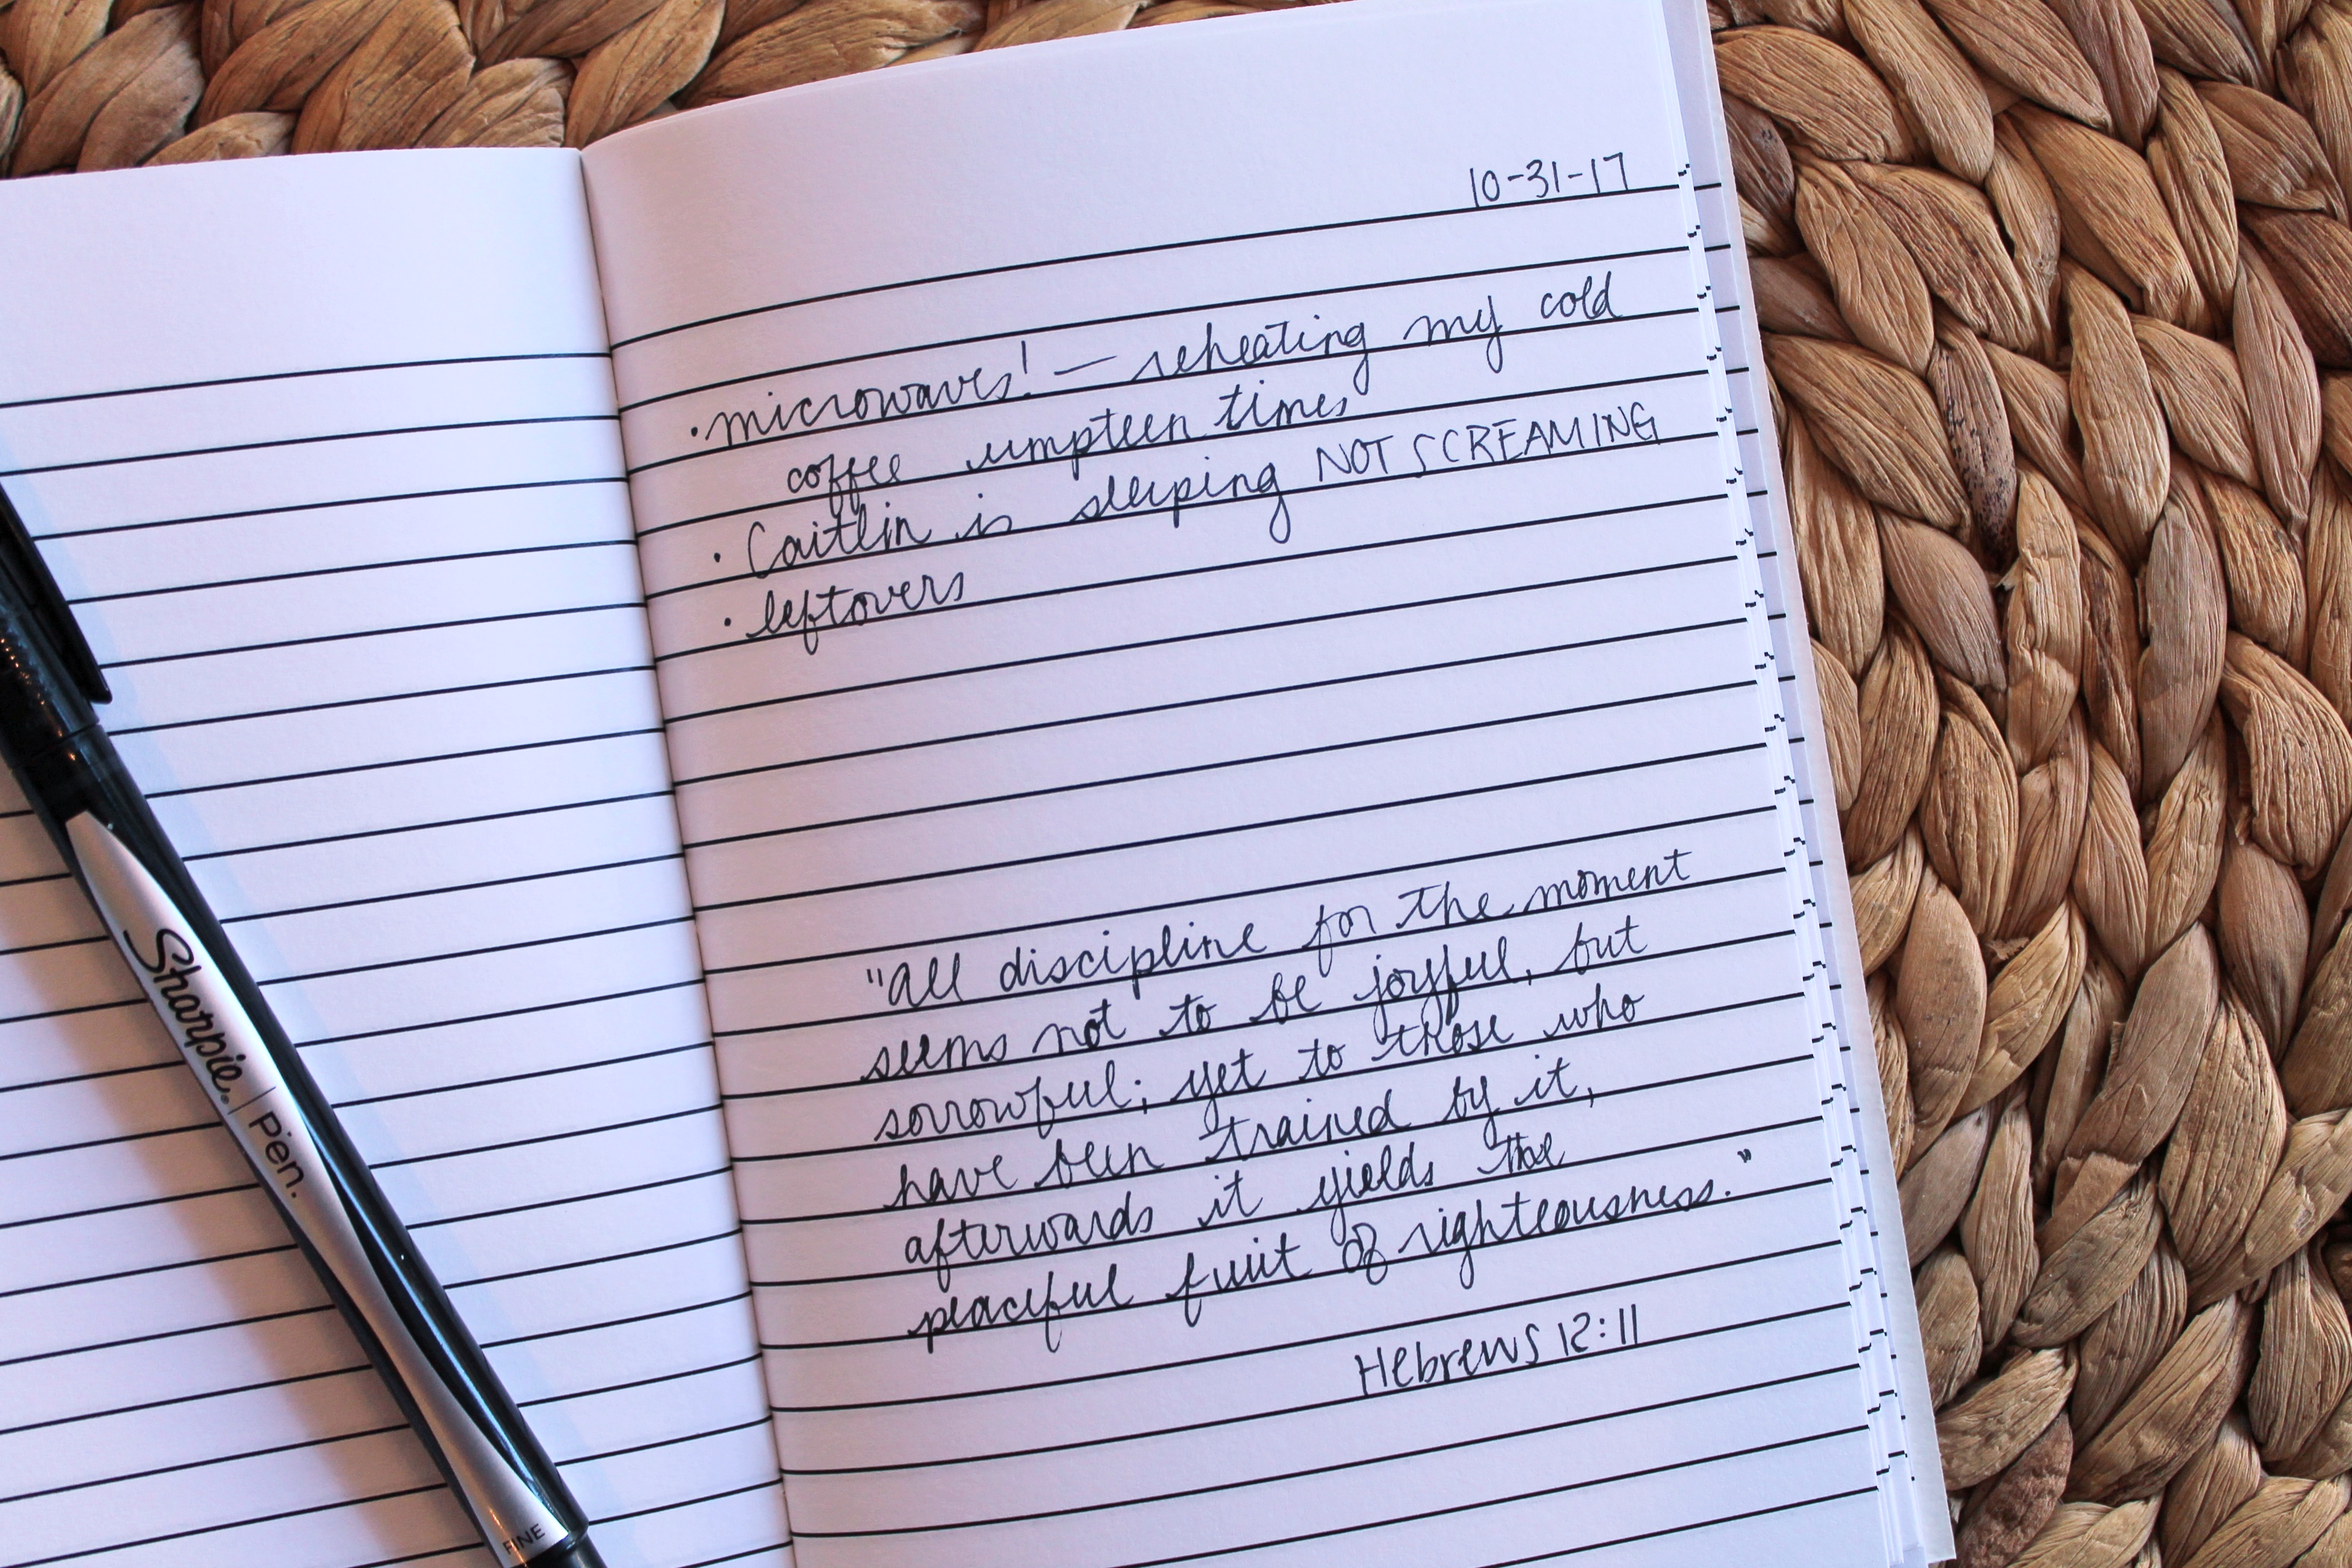 10-31-17
· microwaves! — reheating my cold
coffee umpteen times
· Caitlin is sleeping NOT SCREAMING
· leftovers
"All discipline for the moment
seems not to be joyful, but
sorrowful; yet to those who
have been trained by it,
afterwards it yields the
peaceful fruit of righteousness."
Hebrews 12:11
Sharpie® | Pen.
FINE